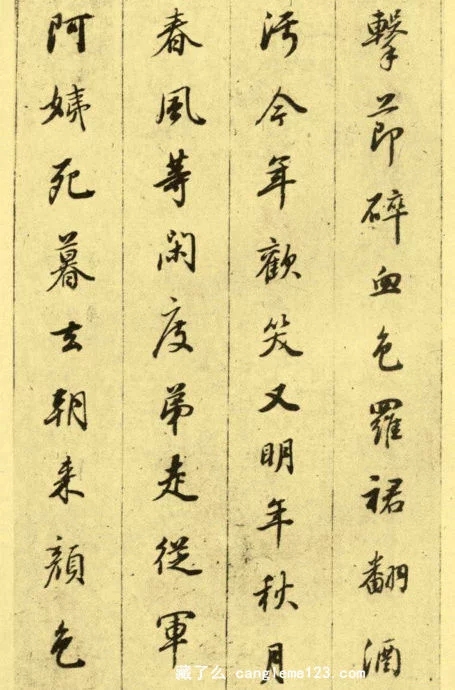 擊節碎血色羅裙翻酒
污今年歡笑又明年秋月
春風等閑度弟走從軍
阿姨死暮去朝来顔色
藏了么 cangleme123.com